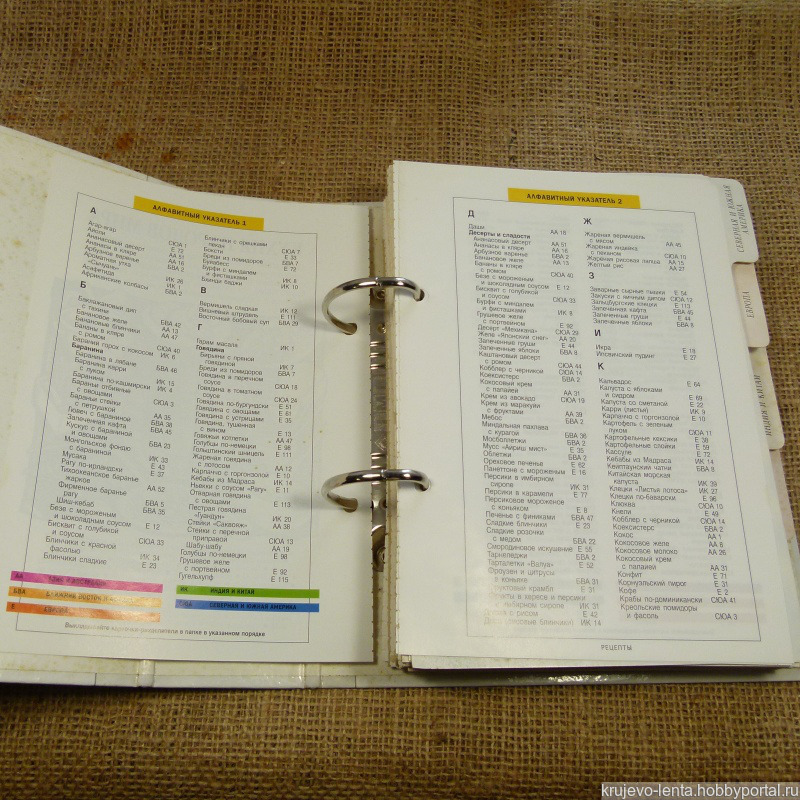 АЛФАВИТНЫЙ УКАЗАТЕЛЬ 1
А
Агар-агар СЮА 1
Айоли Е 72
Ананасовый десерт АА 51
Ананасы в кляре АА 16
Арбузное варенье БВА 2
Ароматная утка
Асафетида ИК 1
Африканские колбасы БВА 2
Б
Баклажановый дип
с тахини БВА 42
Банановое желе АА 13
Банановые блинчики АА 47
Бананы в кляре
с ромом СЮА 40
Бараний горох с кокосом ИК 6
Баранина
Баранина в лаване БВА 46
Баранина карри
с луком ИК 13
Баранина по-кашмирски ИК 4
Бараньи отбивные
с овощами СЮА 3
Бараньи стейки
с петрушкой АА 35
Гювеч с бараниной БВА 38
Запеченная кафта БВА 45
Кускус с бараниной
и овощами БВА 23
Монгольское фондю
с бараниной ИК 33
Мусака Е 43
Рагу по-ирландски Е 37
Тихоокеанское баранье
жаркое АА 52
Фирменное баранье
рагу БВА 5
Шиш-кебаб БВА 35
Безе с мороженым
и шоколадным соусом Е 12
Бисквит с голубикой
и соусом СЮА 33
Блинчики с красной
фасолью ИК 34
Блинчики сладкие Е 23
Блинчики с орешками
пекан СЮА 7
Боксти Е 33
Бреди из помидоров БВА 7
Буйабесс Е 72
Бурфи с миндалем
и фисташками ИК 8
Бхаджи ИК 10
В
Вермишель сладкая ИК 12
Вишневый штрудель Е 111
Восточный бобовый суп БВА 29
Г
Гарам масала ИК 1
Говядина
Бирьени с пряной
говядиной ИК 7
Бреди из помидоров БВА 7
Говядина в перечном
соусе СЮА 18
Говядина в томатном
соусе СЮА 24
Говядина по-бургундски Е 51
Говядина с овощами Е 61
Говядина с устрицами Е 35
Говядина, тушенная
с вином Е 13
Говяжьи котлетки АА 47
Голубцы по-немецки Е 98
Гольштинский шницель Е 111
Жареная говядина
с лотосом АА 12
Карпаччо с горгонзолой Е 10
Кебабы из Мадраса ИК 14
Ньокки с соусом «Рагу» Е 11
Отварная говядина
с овощами Е 113
Пестрая говядина
ИК 20
АА 38
Стейки с перечной
приправой СЮА 13
Шабу-шабу АА 19
Голубцы по-немецки Е 98
Грушевое желе
с портвейном Е 92
Гугельхупф Е 115
ИНДИЯ И КИТАЙ
СЕВЕРНАЯ И ЮЖНАЯ АМЕРИКА
в папке в указанном порядке
АЛФАВИТНЫЙ УКАЗАТЕЛЬ 2
Д
Даши АА 18
Десерты и сладости
Ананасовый десерт АА 51
Ананасы в кляре АА 16
Арбузное варенье БВА 2
Банановое желе АА 13
Бананы в кляре
с ромом СЮА 40
Безе с мороженым
и шоколадным соусом Е 12
Бисквит с голубикой
и соусом СЮА 33
Бурфи с миндалем
и фисташками ИК 8
Грушевое желе
с портвейном Е 92
Десерт «Мехикана» СЮА 29
Желе «Японский снег» АА 20
Запеченные груши Е 44
Запеченные яблоки БВА 8
Каштановый десерт
с ромом СЮА 44
Кобблер с черникой СЮА 14
Коексистерс БВА 2
Кокосовый крем
с папайей АА 31
Крем из авокадо СЮА 19
Крем из маракуйи
с фруктами АА 39
Мебос БВА 2
Миндальная пахлава
с курагой БВА 36
Мосболлетжи БВА 2
Мусс «Айриш мист» Е 35
Облетжи БВА 2
Ореховое печенье Е 62
Панеттоне с мороженым Е 16
Персики в имбирном
сиропе ИК 31
Персики в карамели Е 77
Персиковое мороженое
с коньяком Е 8
Печенье с финиками БВА 47
Сладкие блинчики Е 23
Сладкие розочки
с медом БВА 22
Смородиновое искушение Е 55
Тарнеледжи БВА 2
Тарталетки «Валуа» Е 52
с рисом Е 42
Ж
Жареная вермишель
с мясом АА 45
Жареная индейка
с пеканом СЮА 10
Жареная рисовая лапша АА 15
Желтый рис АА 27
З
Заварные сырные пышки Е 54
Закуски с яичным дипом СЮА 12
Зальцбургские клецки Е 113
Запеченная кафта БВА 45
Запеченные груши Е 44
Запеченные яблоки БВА 8
И
Икра Е 18
Ипсовичский пудинг Е 27
К
Кальвадос Е 64
Капуста с яблоками
и сидром Е 69
Капуста со сметаной Е 22
Карри (листья) ИК 9
Карпаччо с горгонзолой Е 10
Картофель с зеленым
луком СЮА 11
Картофельные кексики Е 38
Картофельные слойки Е 59
Кассуле Е 72
Кебабы из Мадраса ИК 14
Кейптаунский чатни БВА 8
Китайская морская
капуста ИК 39
Клецки «Листья лотоса» ИК 27
Клецки по-баварски Е 96
Клюква СЮА 10
Кнели Е 49
Кобблер с черникой СЮА 14
Коексистерс БВА 2
Кокос АА 1
Кокосовое желе АА 6
Кокосовое молоко АА 26
Кокосовый крем
с папайей АА 31
Конфит Е 71
Корнуэльский пирог Е 31
Кофе Е 2
Крабы по-доминикански СЮА 41
Креольские помидоры
и фасоль СЮА 3
РЕЦЕПТЫ
СЕВЕРНАЯ И ЮЖНАЯ
АМЕРИКА
ЕВРОПА
ИНДИЯ И КИТАЙ
krujevo-lenta.hobbyportal.ru